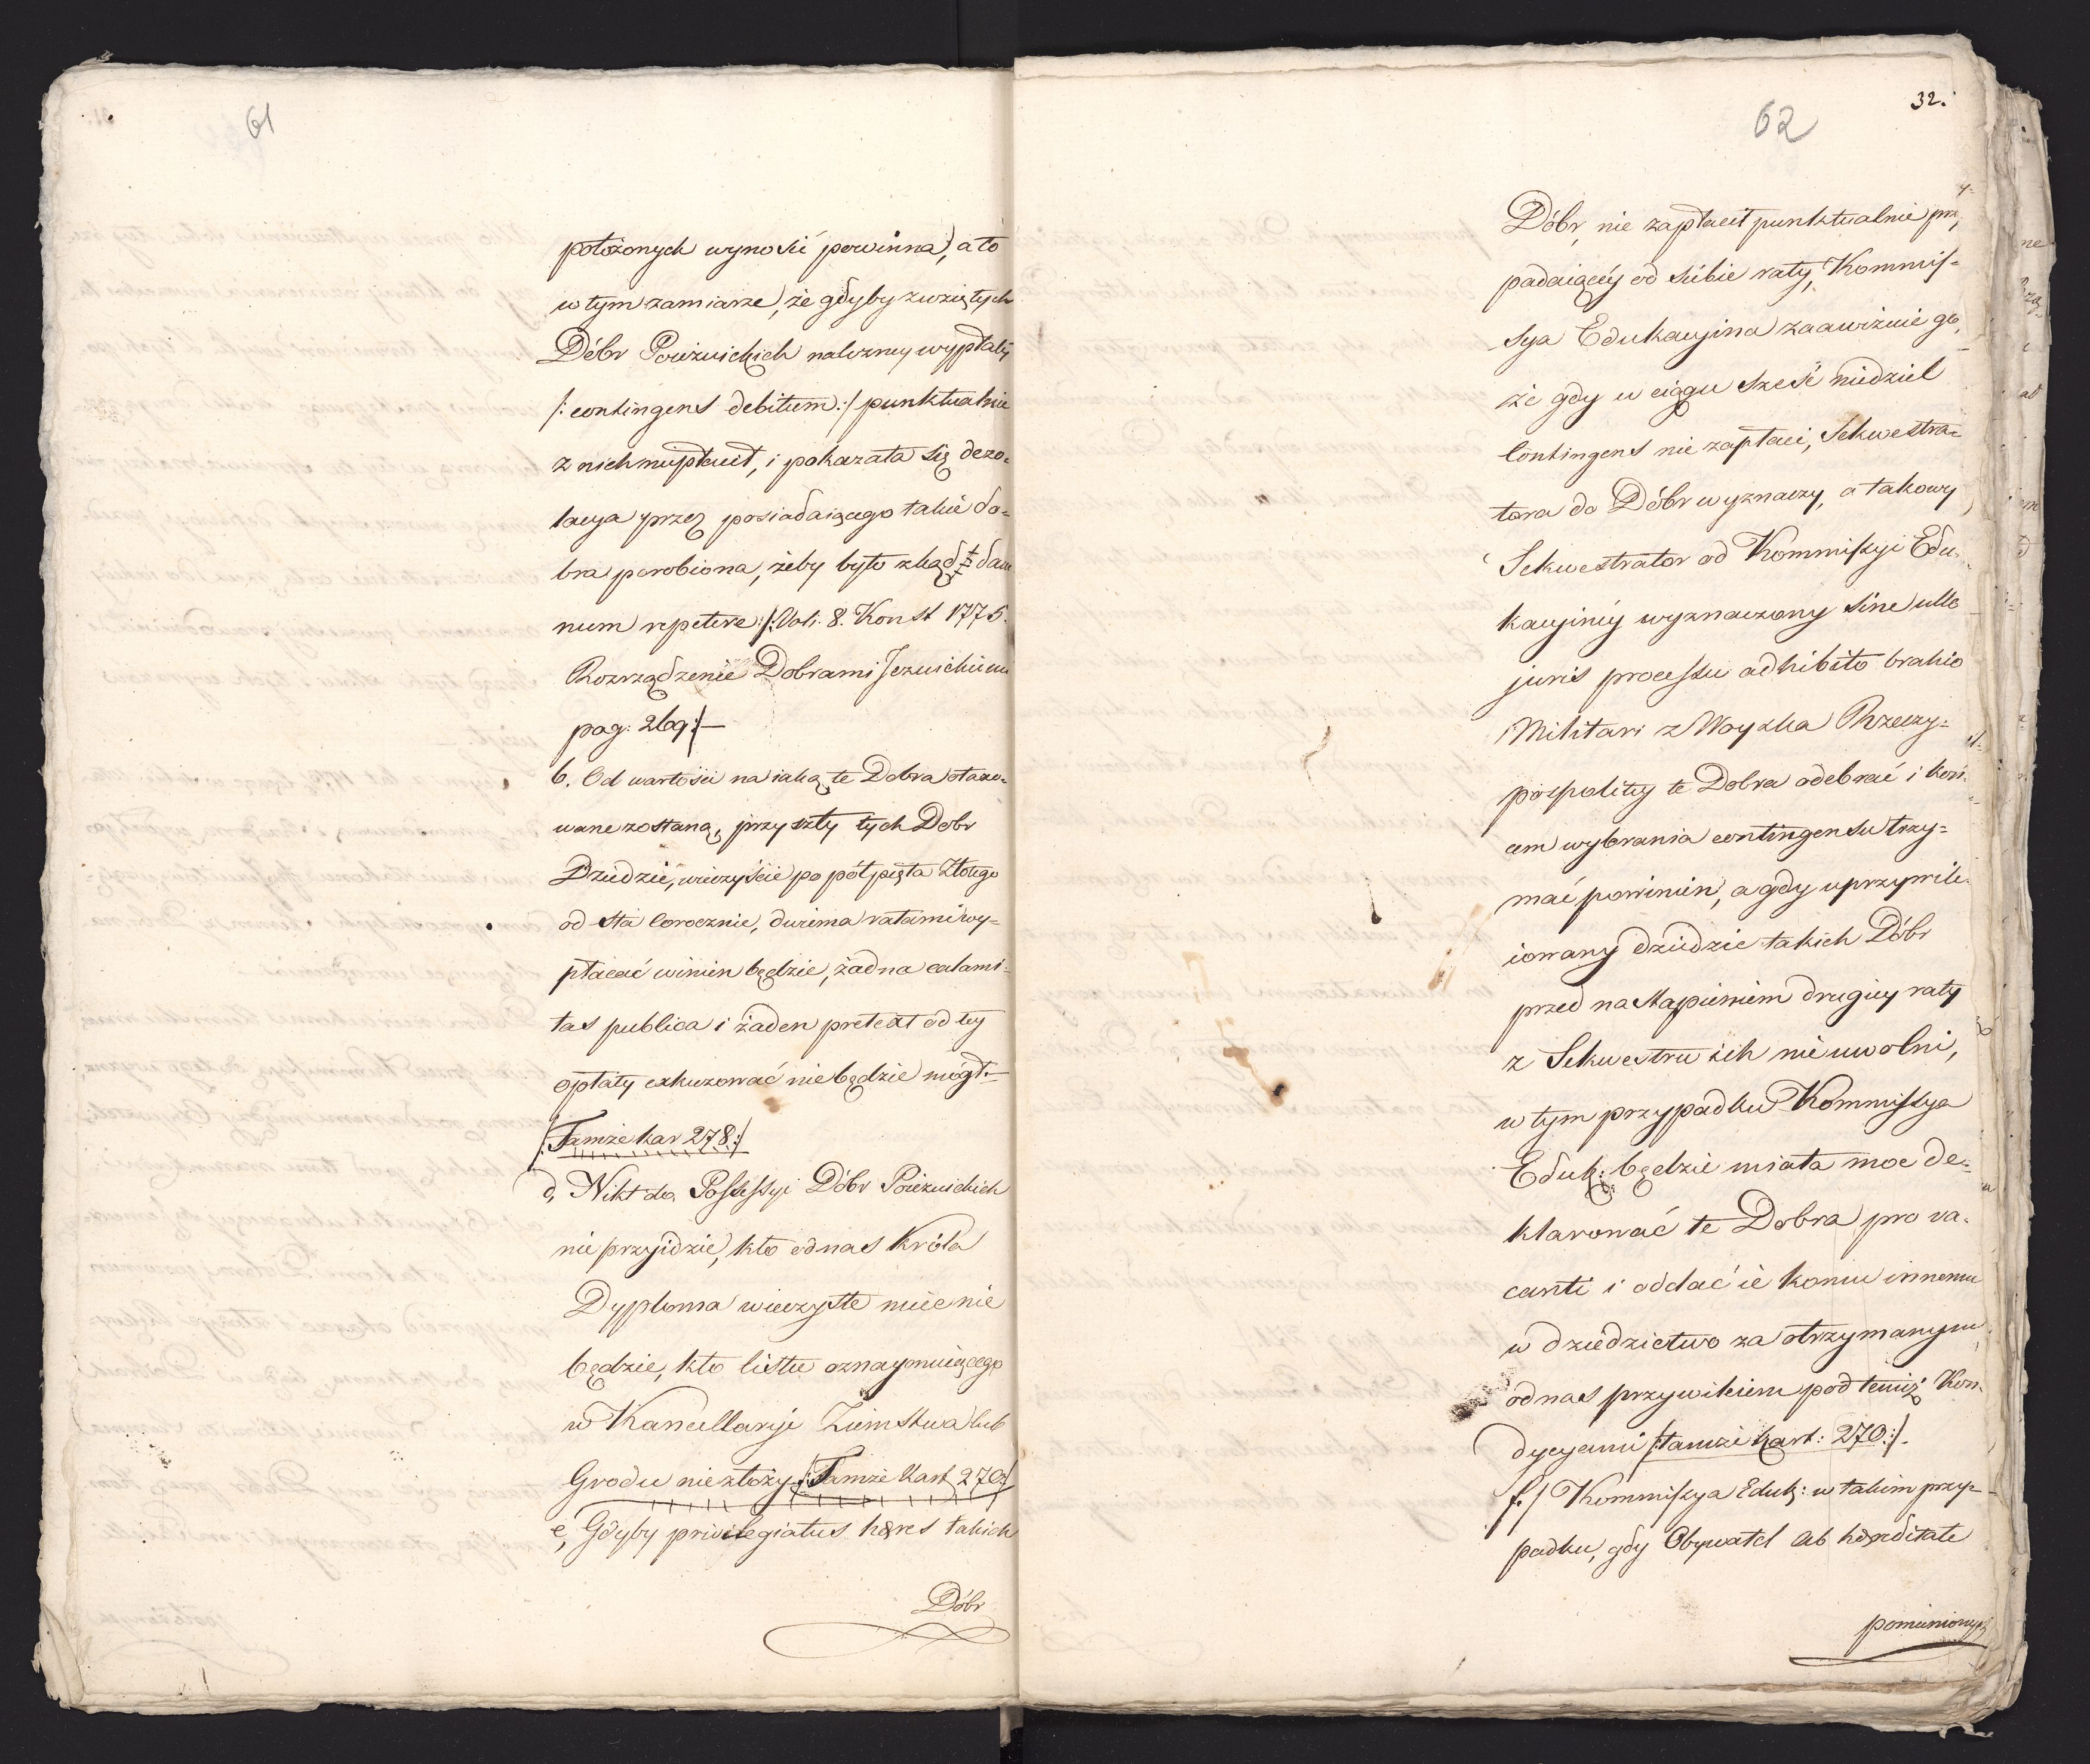 61
położonych wynosić powinna, a to
w tym zamiarze, że gdyby z wziętych
Dóbr Pojezuickich nalezney wypłaty
/: contingens debitum :/ punktualnie
z nich niepłacił, i pokazała się dezo=
lacya przez posiadaiącego takie do=
bra porobiona, żeby było zkąd dam
num repetere :/: Vol: 8. Konst 1775.
Rozrządzenie Dobrami Jezuickiemi
pag: 269 :/—
6. Od wartości na iaką te Dobra otaxo=
wane zostaną, przyszły tych Dobr
Dziedzic, wieczyście po półpięta Złotego
od sta corocznie, dwiema ratami wy=
płacać winien będzie, żadna calami=
tas publica i żaden pretext od tey
opłaty exkuzować nie będzie mógł.—
/: Tamże kar 278 :/
d, Nikt do Possessyi Dóbr Pojezuickich
nie przyidzie, kto od nas Króla
Dyploma wieczyste mieć nie
będzie, kto listu oznaymuiącego
w Kancellaryi Ziemstwa lub
Grodu nie złoży /: Tamże Kart 270 :/
e, Gdyby privilegiatus hæres takich
Dóbr
62
32.
Dóbr, nie zapłacił punktualnie przy
padaiącéy od siebie raty, Kommis=
sya Edukacyina zaawizuie go,
że gdy w ciągu sześć niedziel
Contingens nie zapłaci, Sekwestra=
tora do Dóbr wyznaczy, a takowy
Sekwestrator od Kommissyi Edu=
kacyinéy wyznaczony sine ullo
juris processu adhibito brahio
Militari z Woyska Rzeczy=
pospolitey te Dobra odebrać i koń=
cem wybrania contingensu trzy=
mać powinien, a gdy uprzywile=
iowany dziedzic takich Dóbr
przed nastąpieniem drugiey raty
z Sekwestru ich nie uwolni,
w tym przypadku Kommissya
Eduk: będzie miała moc de=
klarować te Dobra pro va=
canti i oddać ie komu innemu
w dziedzictwo za otrzymanym
od nas przywileiem pod temiż Kon=
dycyami /: tamże kart: 270 :/.
f./ Kommissya Eduk: w takim przy=
padku, gdy Obywatel ab hæreditate
pomienionych